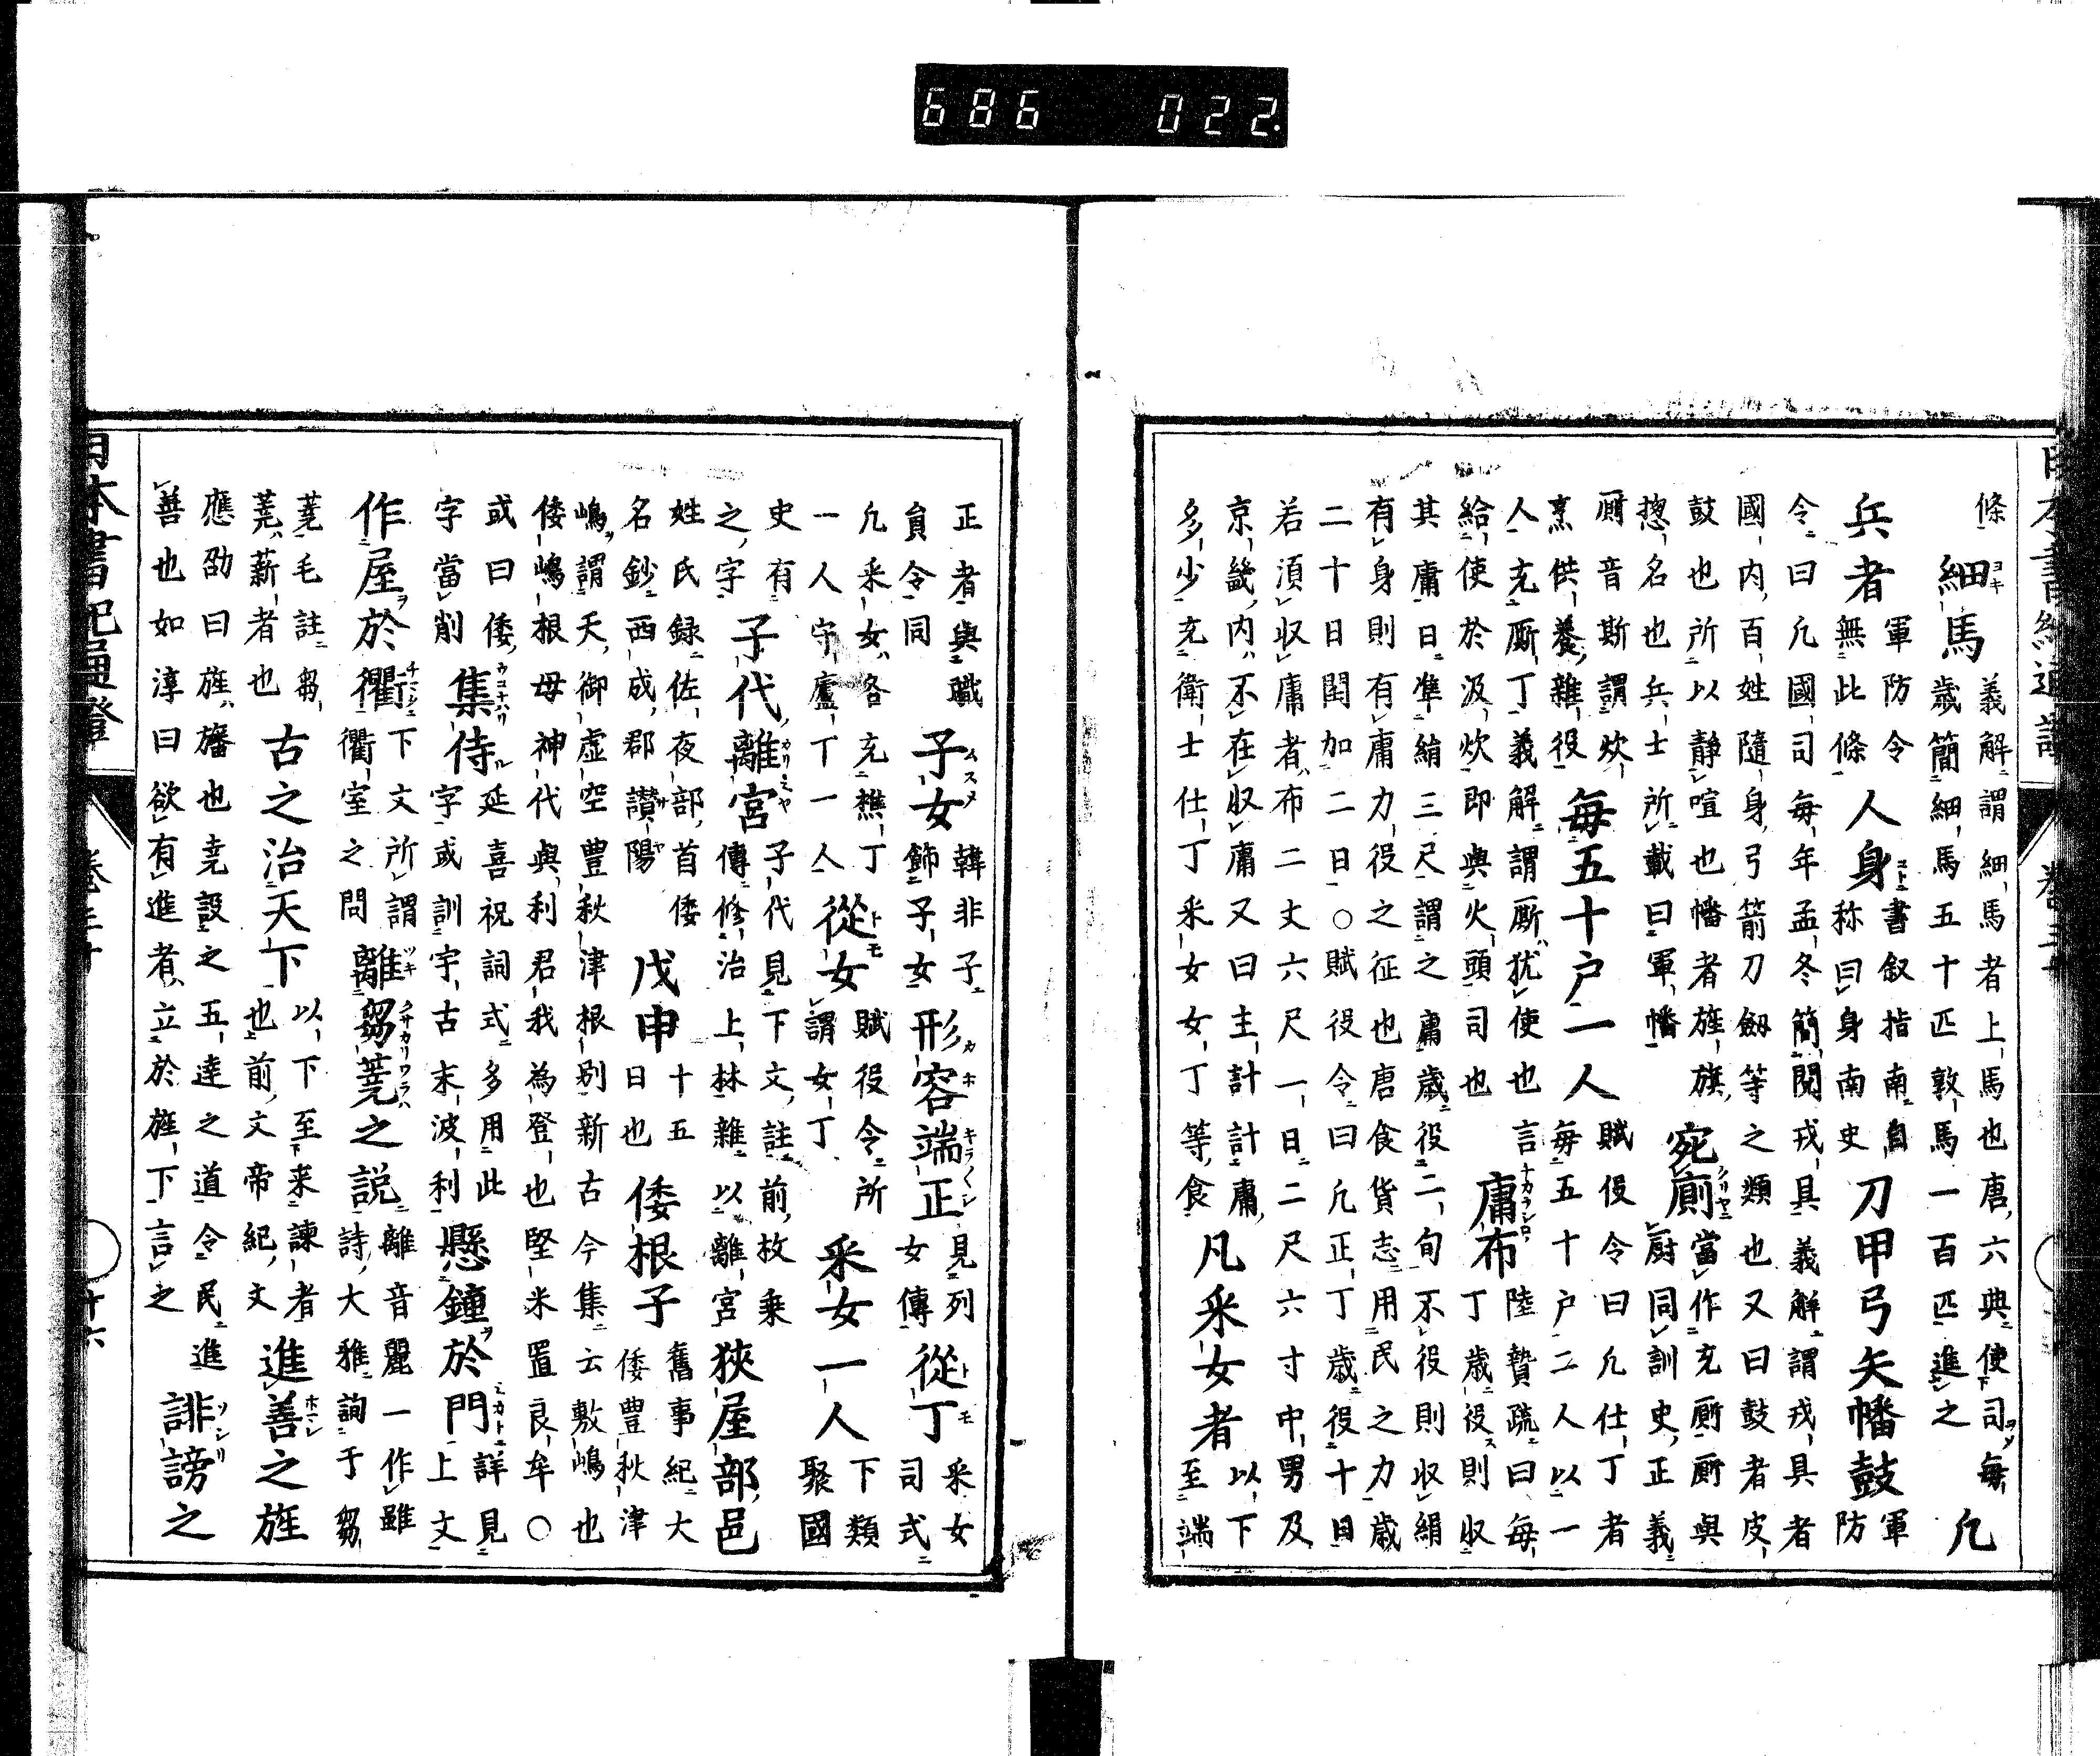 條
細馬
義解謂細馬者上馬也唐六典使司每
歲簡細馬五十匹敦馬一百匹進之
凡
兵者
軍防令
無此條
人身
書叙指南自
称曰身南史
刀甲弓矢幡鼓
軍
防
令曰凡國司每年孟冬簡閱戎具義解謂戎具者
國内百姓隨身弓箭刀劔等之類也又曰鼓者皮
鼓也所以静喧也幡者旌旗
惣名也兵士所載曰軍幡
宛廁
當作充厮厮與
厨同訓史正義
厮音斯謂炊
烹供養雜役
每五十戸一人
賦役令曰凡仕丁者
每五十戸二人以一
人充厮丁義解謂厮猶使也言
給使於汲炊即與火頭司也
庸布
陸贄疏曰每
丁歲役則収
其庸日準絹三尺謂之庸歲役二旬不役則収絹
有身則有庸力役之征也唐食貨志用民之力歲
二十日閏加二日○賦役令曰凡正丁歲役十日
若須収庸者布二丈六尺一日二尺六寸中男及
京畿内不在収庸又曰主計計庸
多少充衛士仕丁采女女丁等食
凡采女者
以下
至端
正者與職
貟令同
子女
韓非子
飾子女
形容端正
見列
女傳
從丁
采女
司式
凡采女各充樵丁
一人守廬丁一人
從女
賦役令所
謂女丁
采女一人
下類
聚國
史有
之字
子代離宮
子代見下文註前枚乗
傳修治上林雜以離宮
狹屋部邑
姓氏録佐夜部首倭
名鈔西成郡讃陽
戊申
十五
日也
倭根子
舊事紀大
倭豊秋津
嶋謂天御虚空豊秋津根别新古今集云敷嶋也
倭嶋根母神代與利君我為登也堅米置良牟○
或曰倭
字當削
集侍
延喜祝詞式多用此
字或訓宇古末波利
懸鐘於門
詳見
上文
作屋於衢
下文所謂
衢室之問
離芻蕘之説
離音麗一作雖
詩大雅詢于芻
蕘毛註芻
蕘薪者也
古之治天下
以下至来諫者
也前文帝紀文
進善之旌
應劭曰旌旛也堯設之五達之道令民進
善也如淳曰欲有進者立於旌下言之
誹謗之
日本書紀通證
十六
686 022.